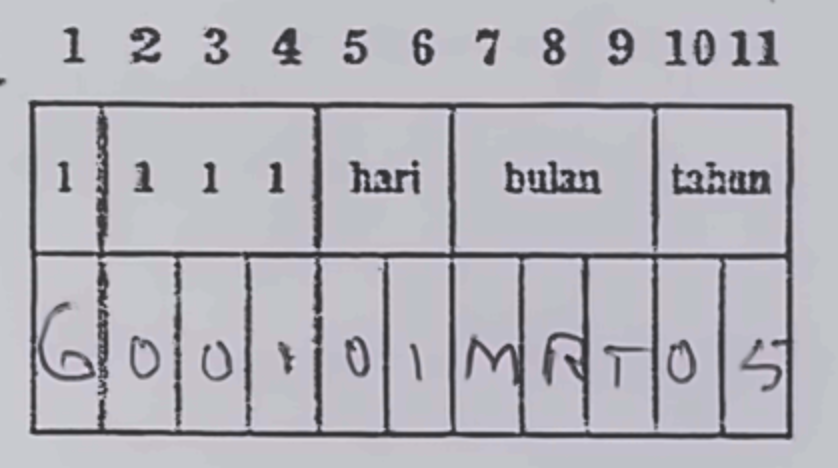 1 2 3 4 5 6 7 8 9 10 11
1 1 1 1 hari bulan tahun
6 0 0 1 0 1 M R T 0 5